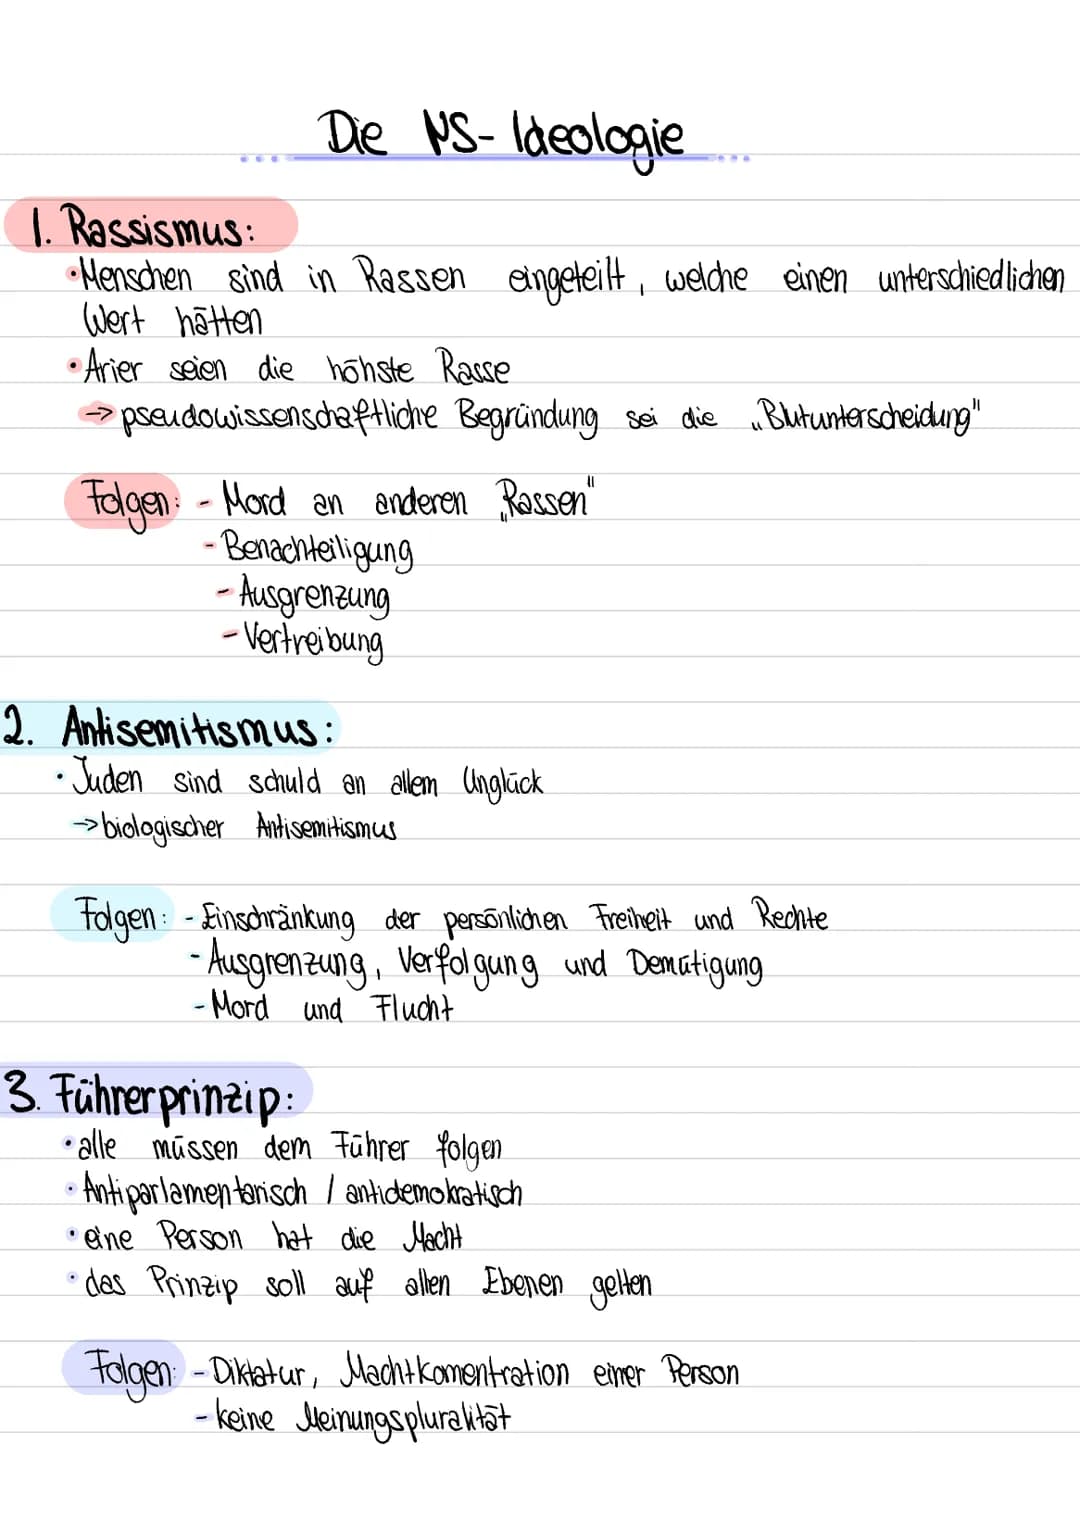 Die NS-Ideologie
1. Rassismus:
•Menschen sind in Rassen eingeteilt, welche einen unterschiedlichen
Wert hätten
•Arier seien die höhste Rasse
→pseudowissenschaftliche Begründung sei die „Blutunterscheidung"
Folgen: - Mord an anderen „Rassen"
- Benachteiligung
- Ausgrenzung
- Vertreibung
2. Antisemitismus:
• Juden sind schuld an allem Unglück
→biologischer Antisemitismus
Folgen: - Einschränkung der persönlichen Freiheit und Rechte
- Ausgrenzung, Verfolgung und Demütigung
- Mord und Flucht
3. Führerprinzip:
• alle müssen dem Führer folgen
• Antiparlamentarisch / antidemokratisch
• eine Person hat die Macht
• das Prinzip soll auf allen Ebenen gelten
Folgen: - Diktatur, Machtkomentration einer Person
- keine Meinungspluralität